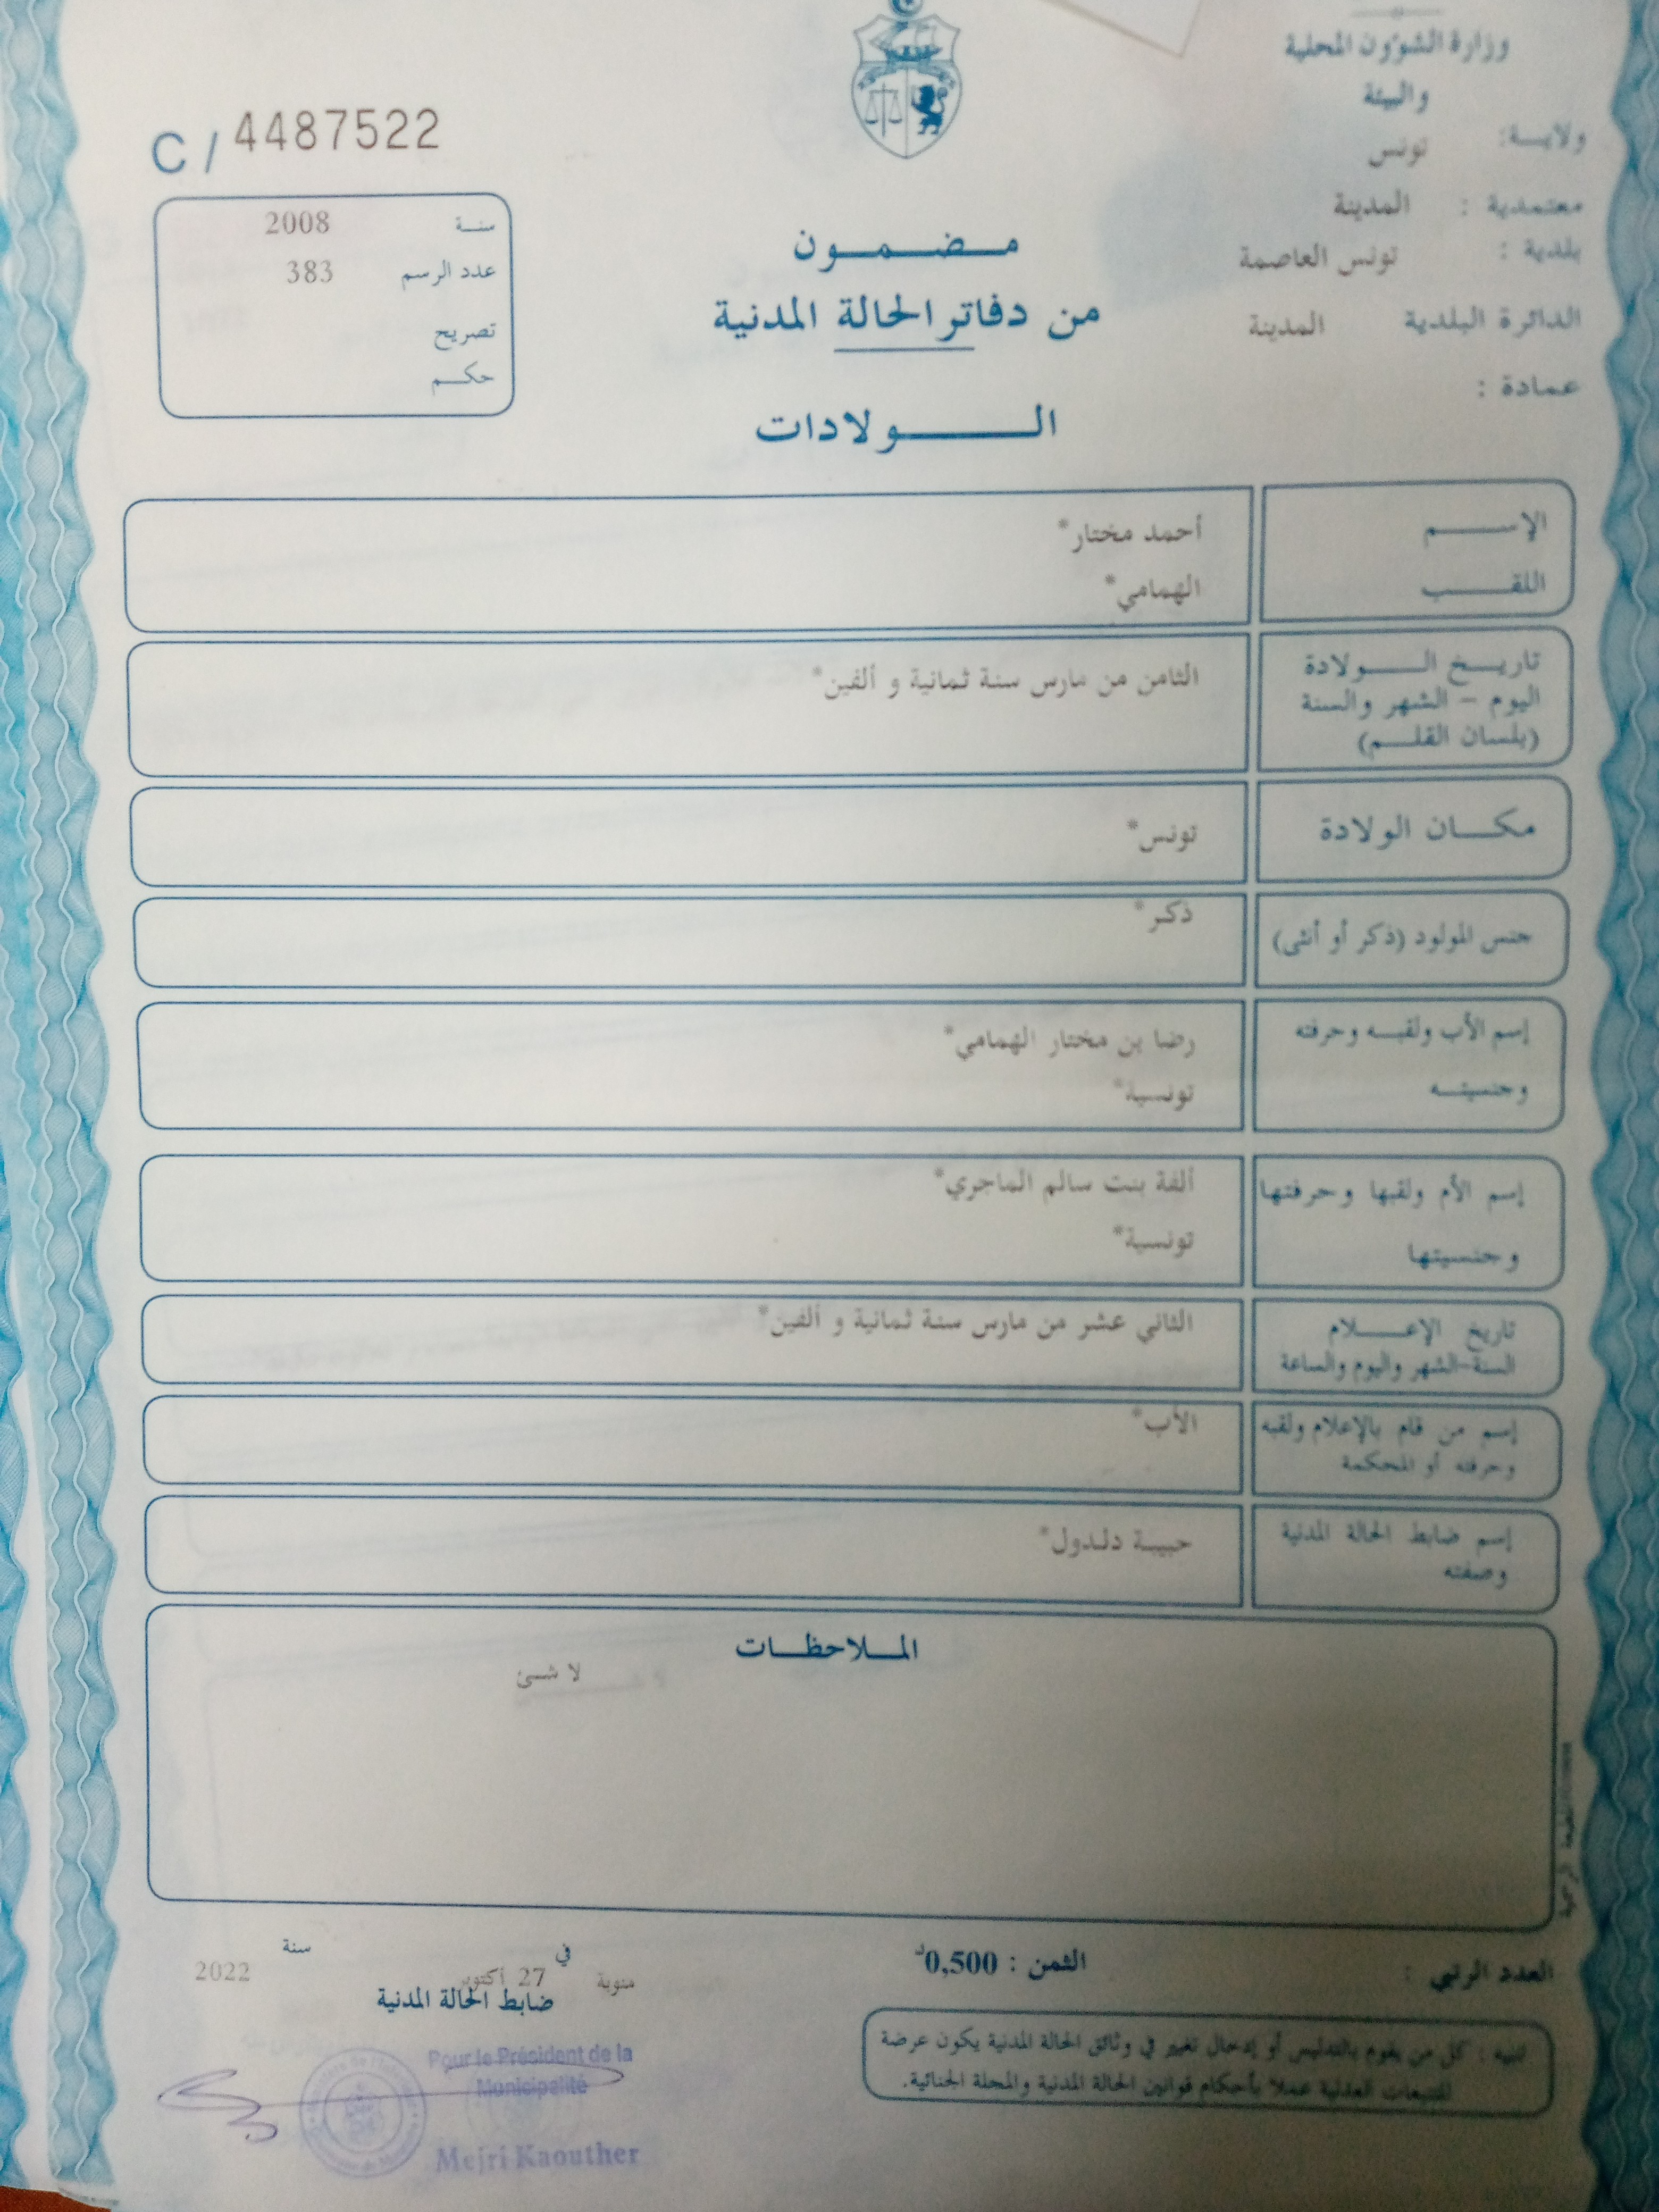 وزارة الشؤون المحلية
والبيئة
ولايـــة: تونس
معتمدية : المدينة
بلدية : تونس العاصمة
الدائرة البلدية المدينة
عمادة :
C / 4487522
سنـة 2008
عدد الرسم 383
تصريح
حكـــم
مـــضـــمـــون
من دفاتر الحالة المدنية
الـــــولادات
الإســـــم أحمد مختار*
اللقـــــب الهمامي*
تاريـــخ الـــــولادة الثامن من مارس سنة ثمانية و ألفين*
اليوم – الشهر والسنة
(بلسان القلـــم)
مكـــان الولادة تونس*
جنس المولود (ذكر أو أنثى) ذكر*
إسم الأب ولقبـــه وحرفته رضا بن مختار الهمامي*
وجنسيتـــه تونسية*
إسم الأم ولقبها وحرفتها ألفة بنت سالم الماجري*
وجنسيتها تونسية*
تاريخ الإعـــــلام الثاني عشر من مارس سنة ثمانية و ألفين*
السنة-الشهر واليوم والساعة
إسم من قام بالإعلام ولقبه الأب*
وحرفته أو المحكمة
إسم ضابط الحالة المدنية حبيبة دلدول*
وصفته
المـــلاحظـــات
لا شـئ
العدد الرتبي :
الثمن : 0,500د
منوبة في 27 أكتوبر سنة 2022
ضابط الحالة المدنية
تنبيه : كل من يقوم بالتدليس أو إدخال تغيير في وثائق الحالة المدنية يكون عرضة
للتتبعات العدلية عملا بأحكام قوانين الحالة المدنية والمجلة الجنائية.
Pour le Président de la
Municipalité
Mejri Kaouther